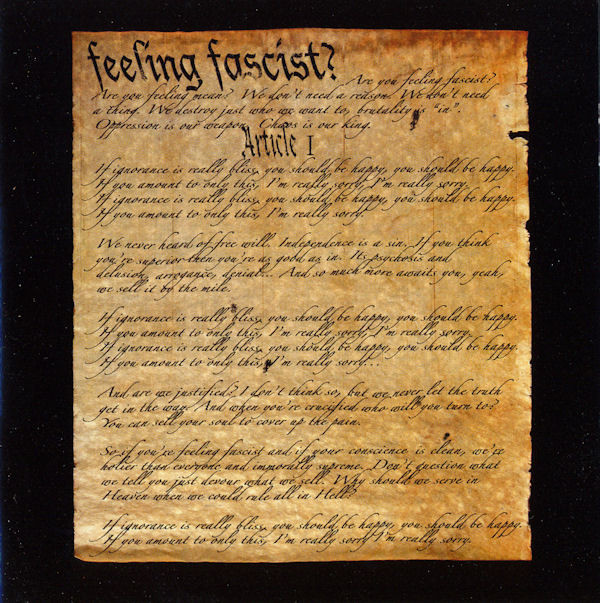 feeling fascist?
Are you feeling fascist?
Are you feeling mean? We don't need a reason. We don't need
a thing. We destroy just who we want to, brutality is "in".
Oppression is our weapon. Chaos is our king.
Article I
If ignorance is really bliss, you should be happy, you should be happy.
If you amount to only this, I'm really sorry, I'm really sorry.
If ignorance is really bliss, you should be happy, you should be happy.
If you amount to only this, I'm really sorry.
We never heard of free will. Independence is a sin. If you think
you're superior then you're as good as in. Its psychosis and
delusion, arrogance, denial... And so much more awaits you, yeah,
we sell it by the mile.
If ignorance is really bliss, you should be happy, you should be happy.
If you amount to only this, I'm really sorry, I'm really sorry.
If ignorance is really bliss, you should be happy, you should be happy.
If you amount to only this, I'm really sorry...
And are we justified? I don't think so, but we never let the truth
get in the way. And when you're crucified who will you turn to?
You can sell your soul to cover up the pain.
So if you're feeling fascist and if your conscience is clean, we're
holier than everyone and immorally supreme. Don't question what
we tell you just devour what we sell. Why should we serve in
Heaven when we could rule all in Hell?
If ignorance is really bliss, you should be happy, you should be happy.
If you amount to only this, I'm really sorry I'm really sorry.